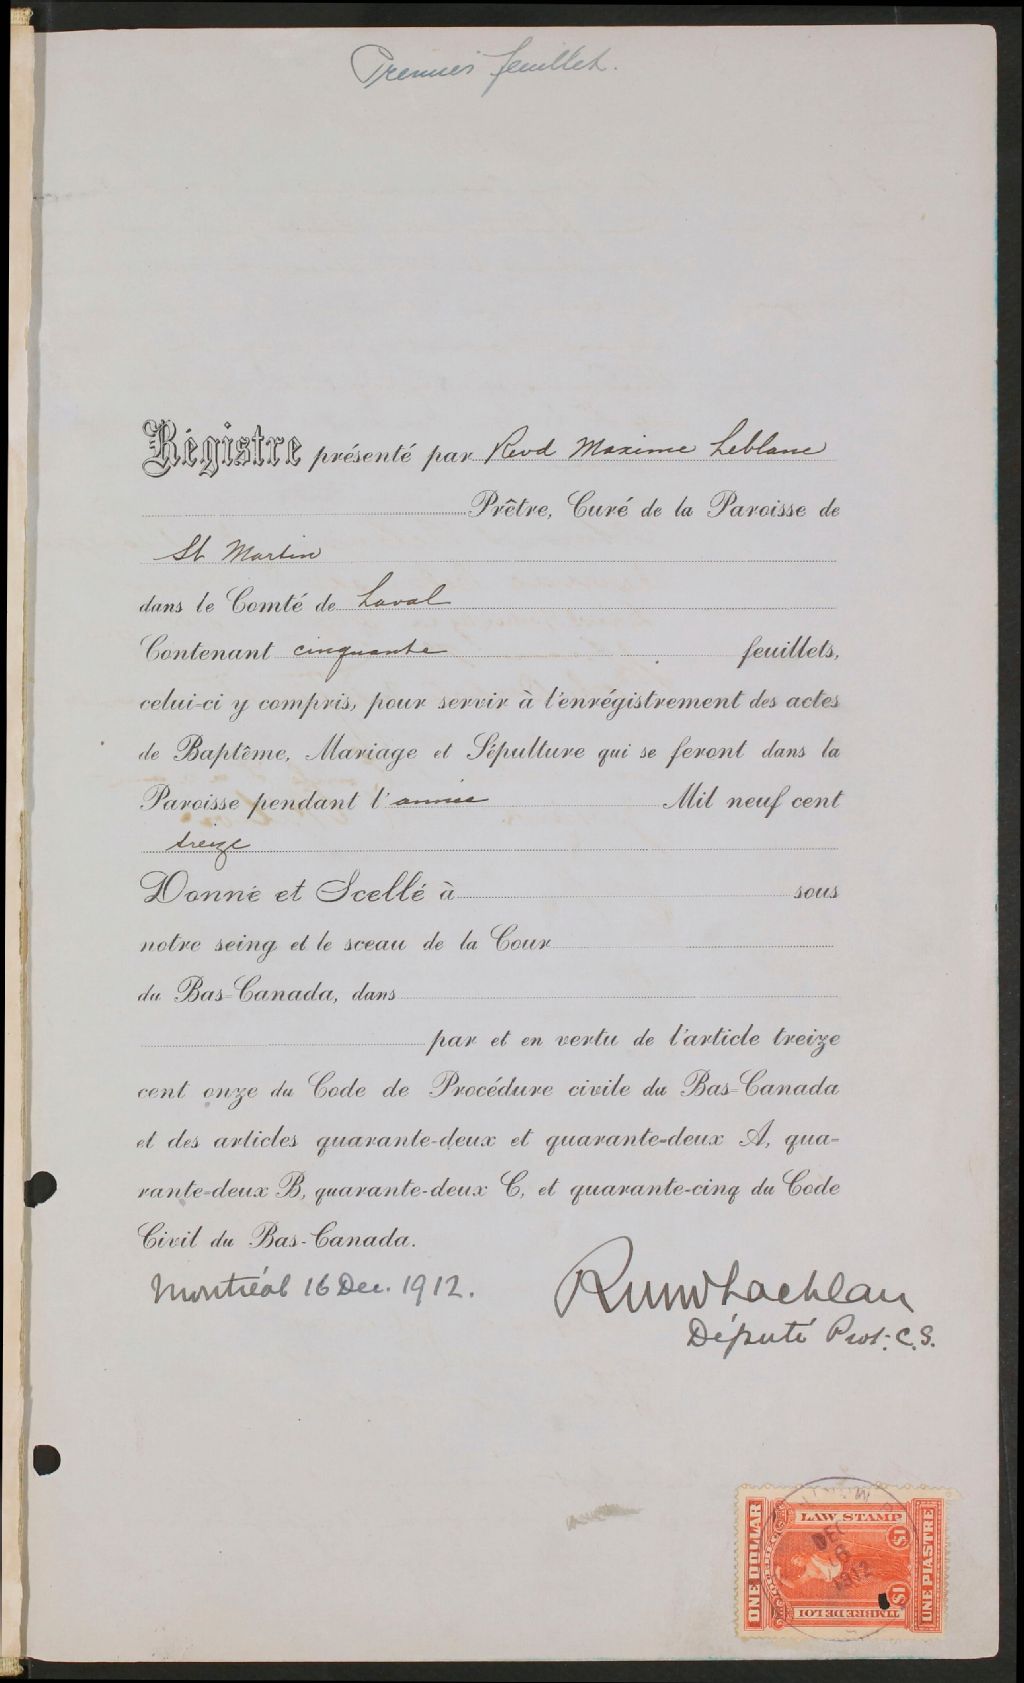 Premier feuillet.
Régistre présenté par Revd Maxime Leblanc
Prêtre, Curé de la Paroisse de
St Martin
dans le Comté de Laval
Contenant cinquante feuillets,
celui-ci y compris, pour servir à l'enrégistrement des actes
de Baptême, Mariage et Sépulture qui se feront dans la
Paroisse pendant l'année Mil neuf cent
treize
Donné et Scellé à sous
notre seing et le sceau de la Cour
du Bas-Canada, dans
par et en vertu de l'article treize
cent onze du Code de Procédure civile du Bas-Canada
et des articles quarante-deux et quarante-deux A, qua-
rante-deux B, quarante-deux C, et quarante-cinq du Code
Civil du Bas-Canada.
Montréal 16 Dec. 1912.
Député Prot: C.S.
LAW STAMP
ONE DOLLAR
$1
$1
UNE PIASTRE
TIMBRE DE LOI
DEC
1912